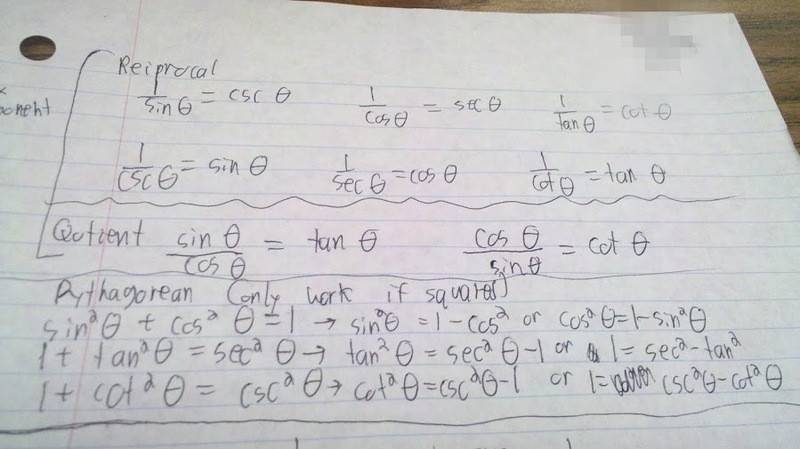 Reciprocal
1/sin θ = csc θ 1/cos θ = sec θ 1/tan θ = cot θ
1/csc θ = sin θ 1/sec θ = cos θ 1/cot θ = tan θ
Quotient sin θ/cos θ = tan θ cos θ/sin θ = cot θ
Pythagorean (only work if squared)
sin²θ + cos² θ = 1 → sin²θ = 1 - cos² or cos²θ = 1 - sin²θ
1 + tan²θ = sec² θ → tan² θ = sec² θ - 1 or 1 = sec² - tan²
1 + cot² θ = csc² θ → cot²θ = csc²θ - 1 or 1 = csc²θ - cot²θ